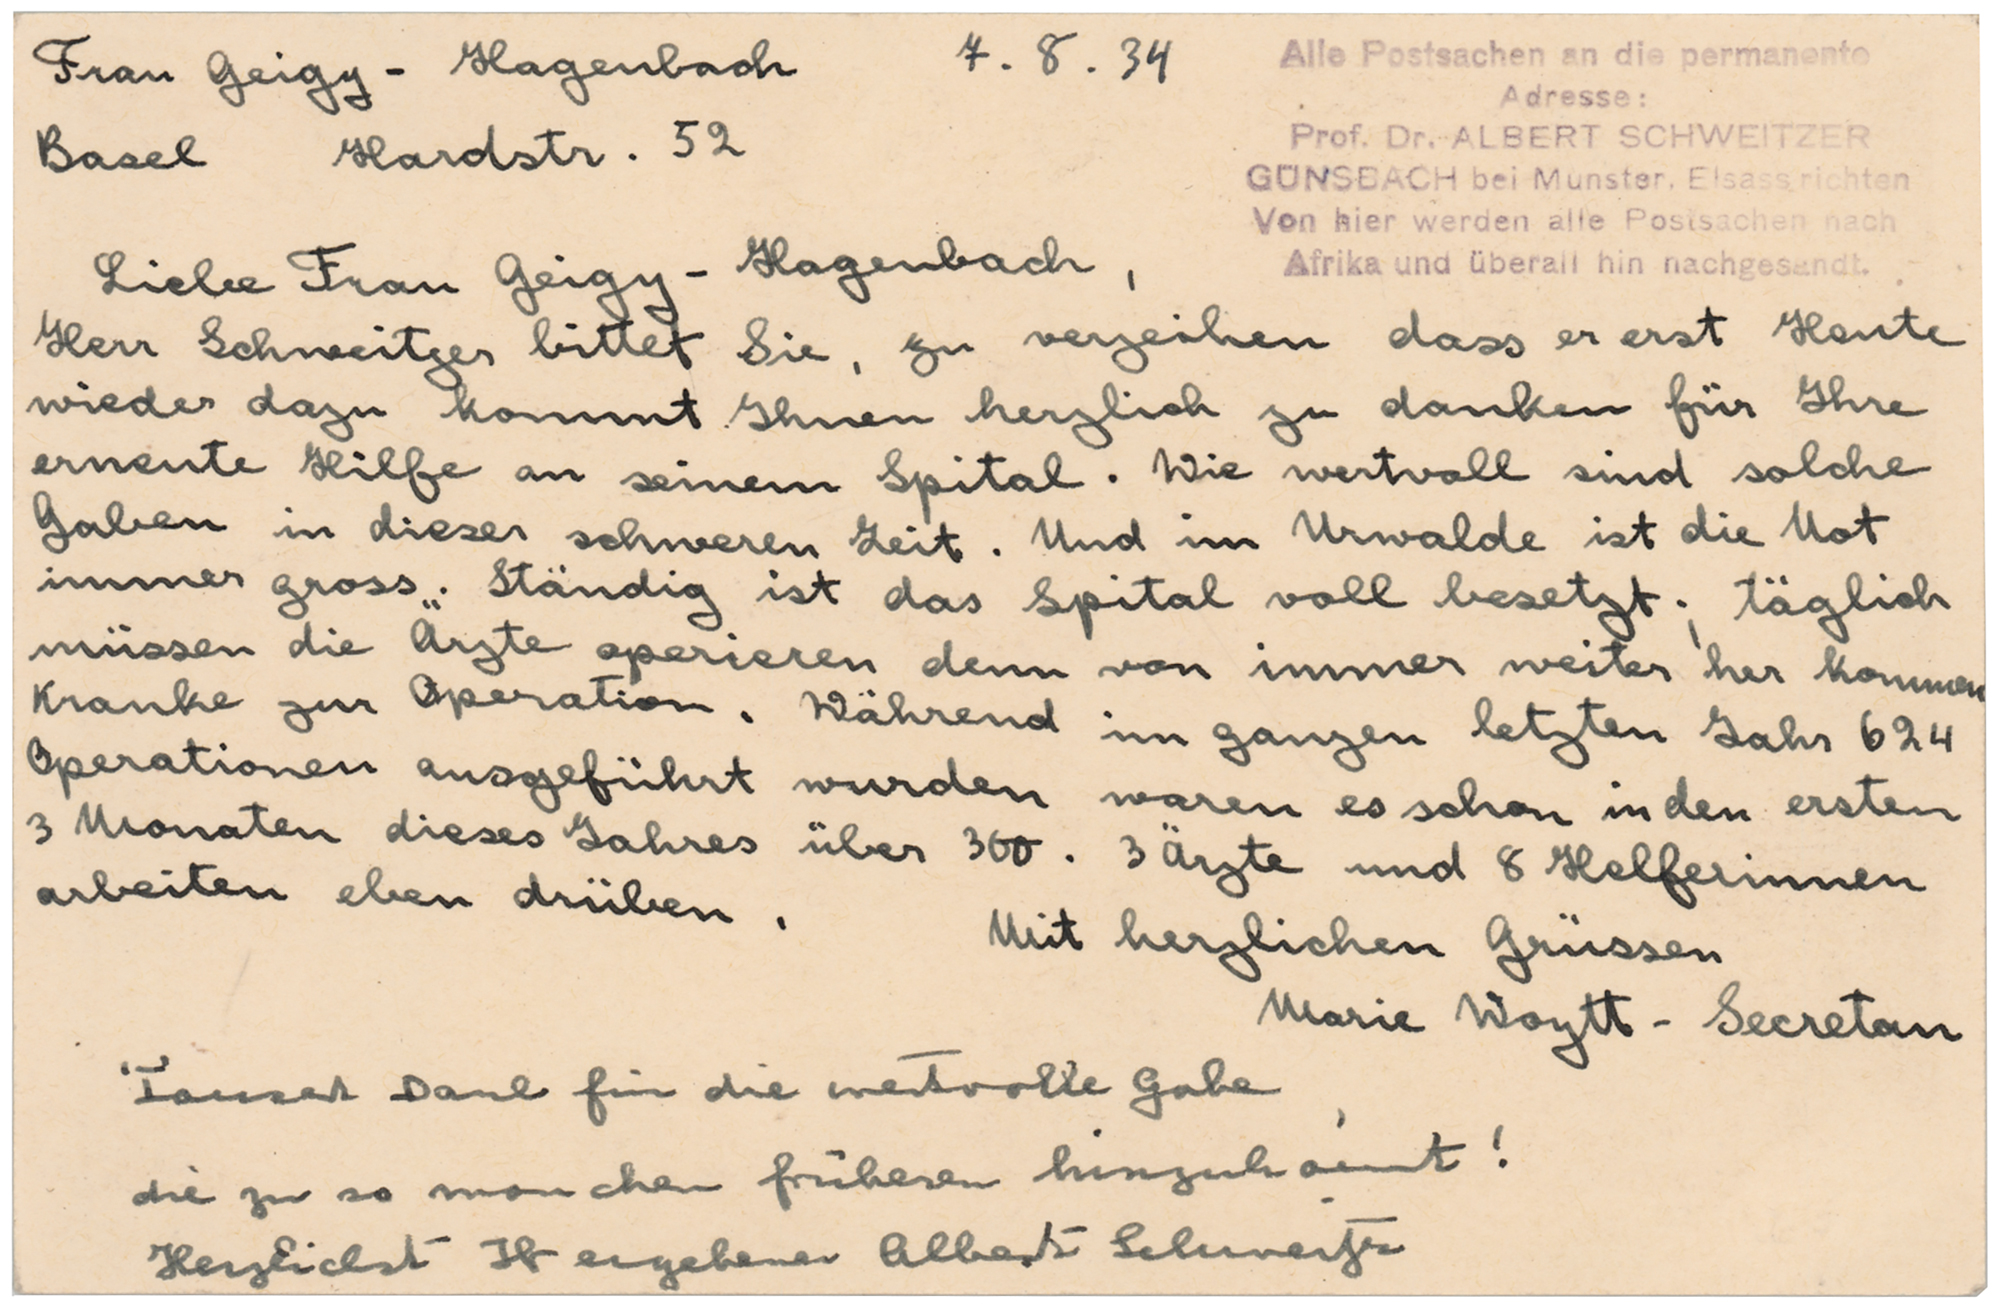 Frau Geigy - Hagenbach 7. 8. 34
Basel Hardstr. 52
Alle Postsachen an die permanente
Adresse:
Prof. Dr. ALBERT SCHWEITZER
GÜNSBACH bei Munster, Elsass richten
Von hier werden alle Postsachen nach
Afrika und überall hin nachgesandt.
Liebe Frau Geigy - Hagenbach,
Herr Schweitzer bittet Sie, zu verzeihen dass er erst Heute
wieder dazu kommt Ihnen herzlich zu danken für Ihre
erneute Hilfe an seinem Spital. Wie wertvoll sind solche
Gaben in dieser schweren Zeit. Und im Urwalde ist die Not
immer gross. Ständig ist das Spital voll besetzt; täglich
müssen die Ärzte operieren denn von immer weiter her kommen
Kranke zur Operation. Während im ganzen letzten Jahr 624
Operationen ausgeführt wurden waren es schon in den ersten
3 Monaten dieses Jahres über 300. 3 Ärzte und 8 Helferinnen
arbeiten eben drüben.
Mit herzlichen Grüssen
Marie Woytt - Secretan
Tausend Dank für die wertvolle Gabe,
die zu so manchen früheren hinzukommt!
Herzlichst Ihr ergebener Albert Schweitzer